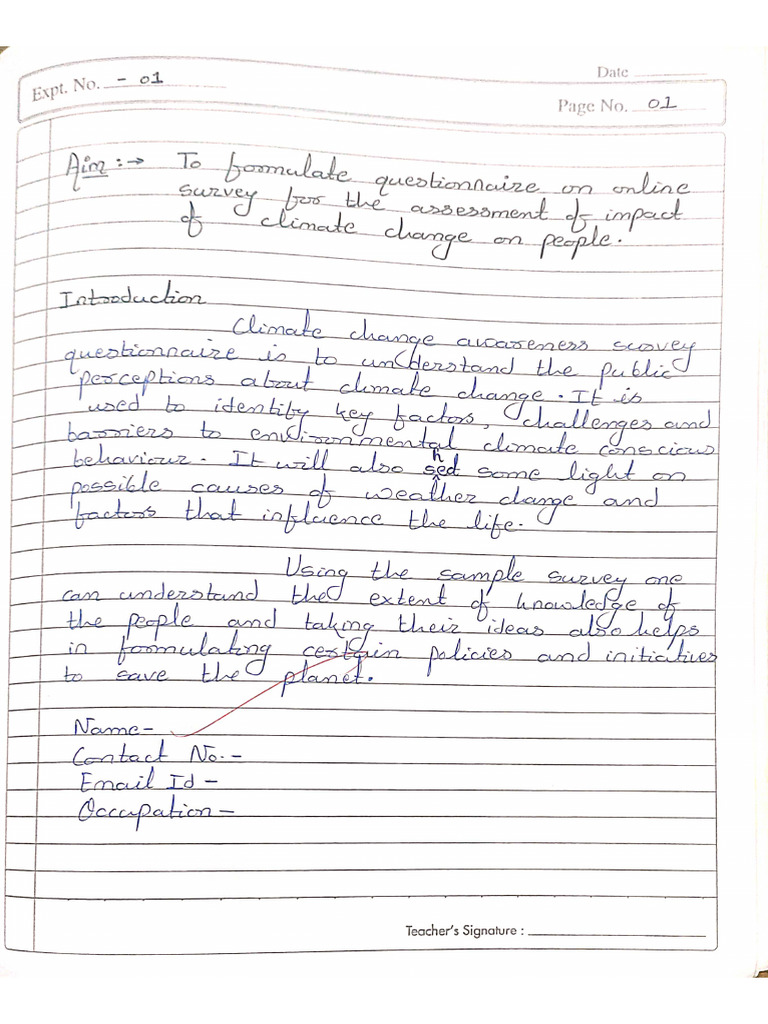 Expt. No. - 01
Date
Page No. 01
Aim :→ To formulate questionnaire on online
survey for the assessment of impact
of climate change on people.
Introduction
Climate change awareness survey
questionnaire is to understand the public
perceptions about climate change. It is
used to identify key factors, challenges and
barriers to environmental climate conscious
behaviour. It will also shed some light on
possible causes of weather change and
factors that influence the life.
Using the sample survey one
can understand the extent of knowledge of
the people and taking their ideas also helps
in formulating certain policies and initiatives
to save the planet.
Name-
Contact No.-
Email Id -
Occupation-
Teacher's Signature :